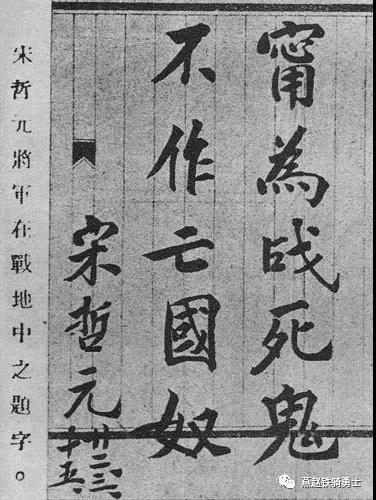 甯為战死鬼
不作亡國奴
宋哲元
廿二、三、
十五、
宋哲元將軍在戰地中之題字。
燕赵铁骑勇士